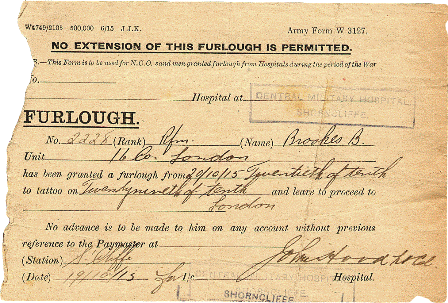 Wt749/2108 500,000 6/15 J.J.K. Army Form W 3127.
NO EXTENSION OF THIS FURLOUGH IS PERMITTED.
—This Form is to be used for N.C.O. s and men granted furlough from Hospitals during the period of the War
o.
Hospital at CENTRAL MILITARY HOSPITAL
SHORNCLIFFE
FURLOUGH.
No. 2228 (Rank) Rfn. (Name) Brookes B.
Unit 16 Co. London
has been granted a furlough from 20/10/15 Twentieth of tenth
to tattoo on Twentynineth of tenth and leave to proceed to
London
No advance is to be made to him on any account without previous
reference to the Paymaster at
(Station) S. Cliffe
(Date) 19/10/15 CENTRAL MILITARY HOSPITAL Hospital.
SHORNCLIFFE